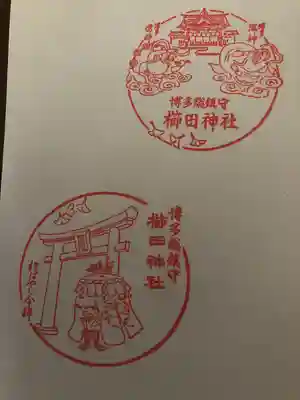 博多総鎮守
櫛田神社
風神
博多総鎮守
櫛田神社